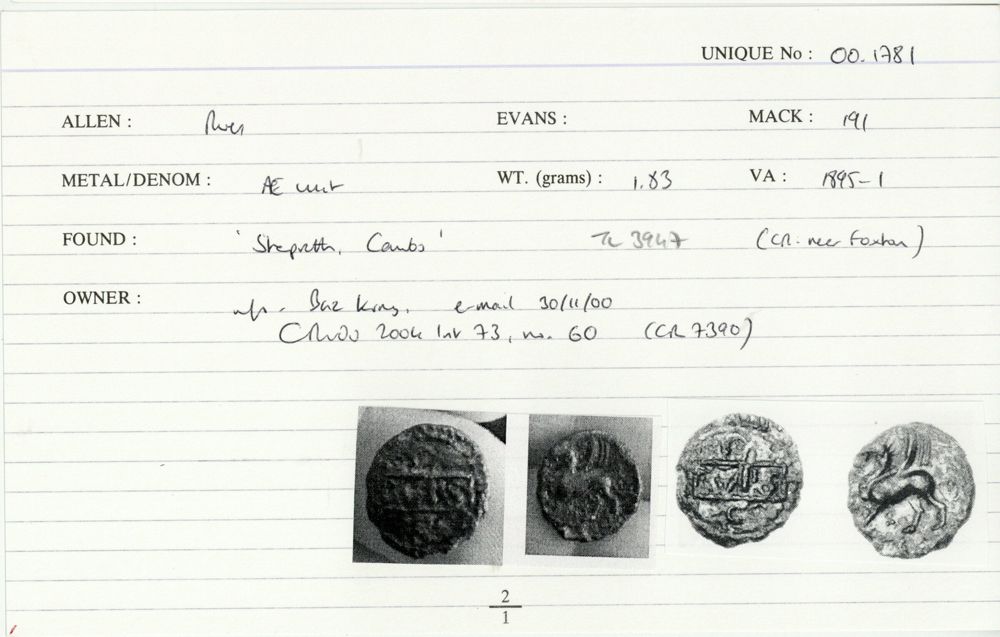 UNIQUE No : 00.1781
ALLEN : EVANS : MACK : 191
METAL/DENOM : Æ unit WT. (grams) : 1.83 VA : 1895-1
FOUND : 'Shepreth, Cambs' TL 3947 (CR. near Foxton)
OWNER : Baz King, e-mail 30/11/00
2004 73, no. 60 (CR 7390)
2
1